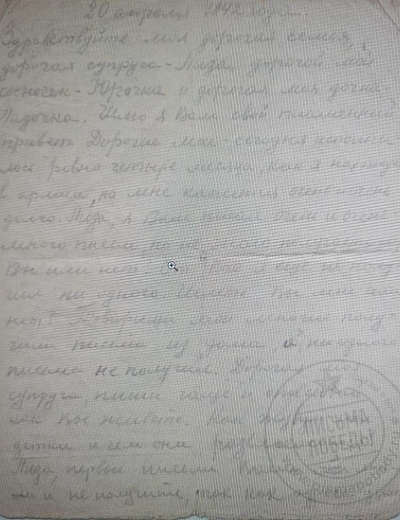 20 апреля 1942 года.
Здравствуйте моя дорогая семья,
дорогая супруга - Лида, дорогой мой
сыночек - Юрочка и дорогая моя дочка -
Лидочка. Шлю я Вам свой пламенный
привет. Дорогие мои - сегодня исполни
лось ровно четыре месяца, как я нахожусь
в армии, но мне кажется очень-очень
долго. Лида, я Вам писал очень и очень
много писем, но не знаю получаете
Вы или нет. еще не полу
чил ни одного. Пишете Вы мне или
нет? Товарищи мои многие полу-
чили письма из дома, а я ни одного
письма не получил. Дорогая моя
супруга, пиши чаще и
как Вы живете. Как
детки и чем они
Лида, первые письма
ли и не получите, так как
ПИСЬМА
ПОБЕДЫ